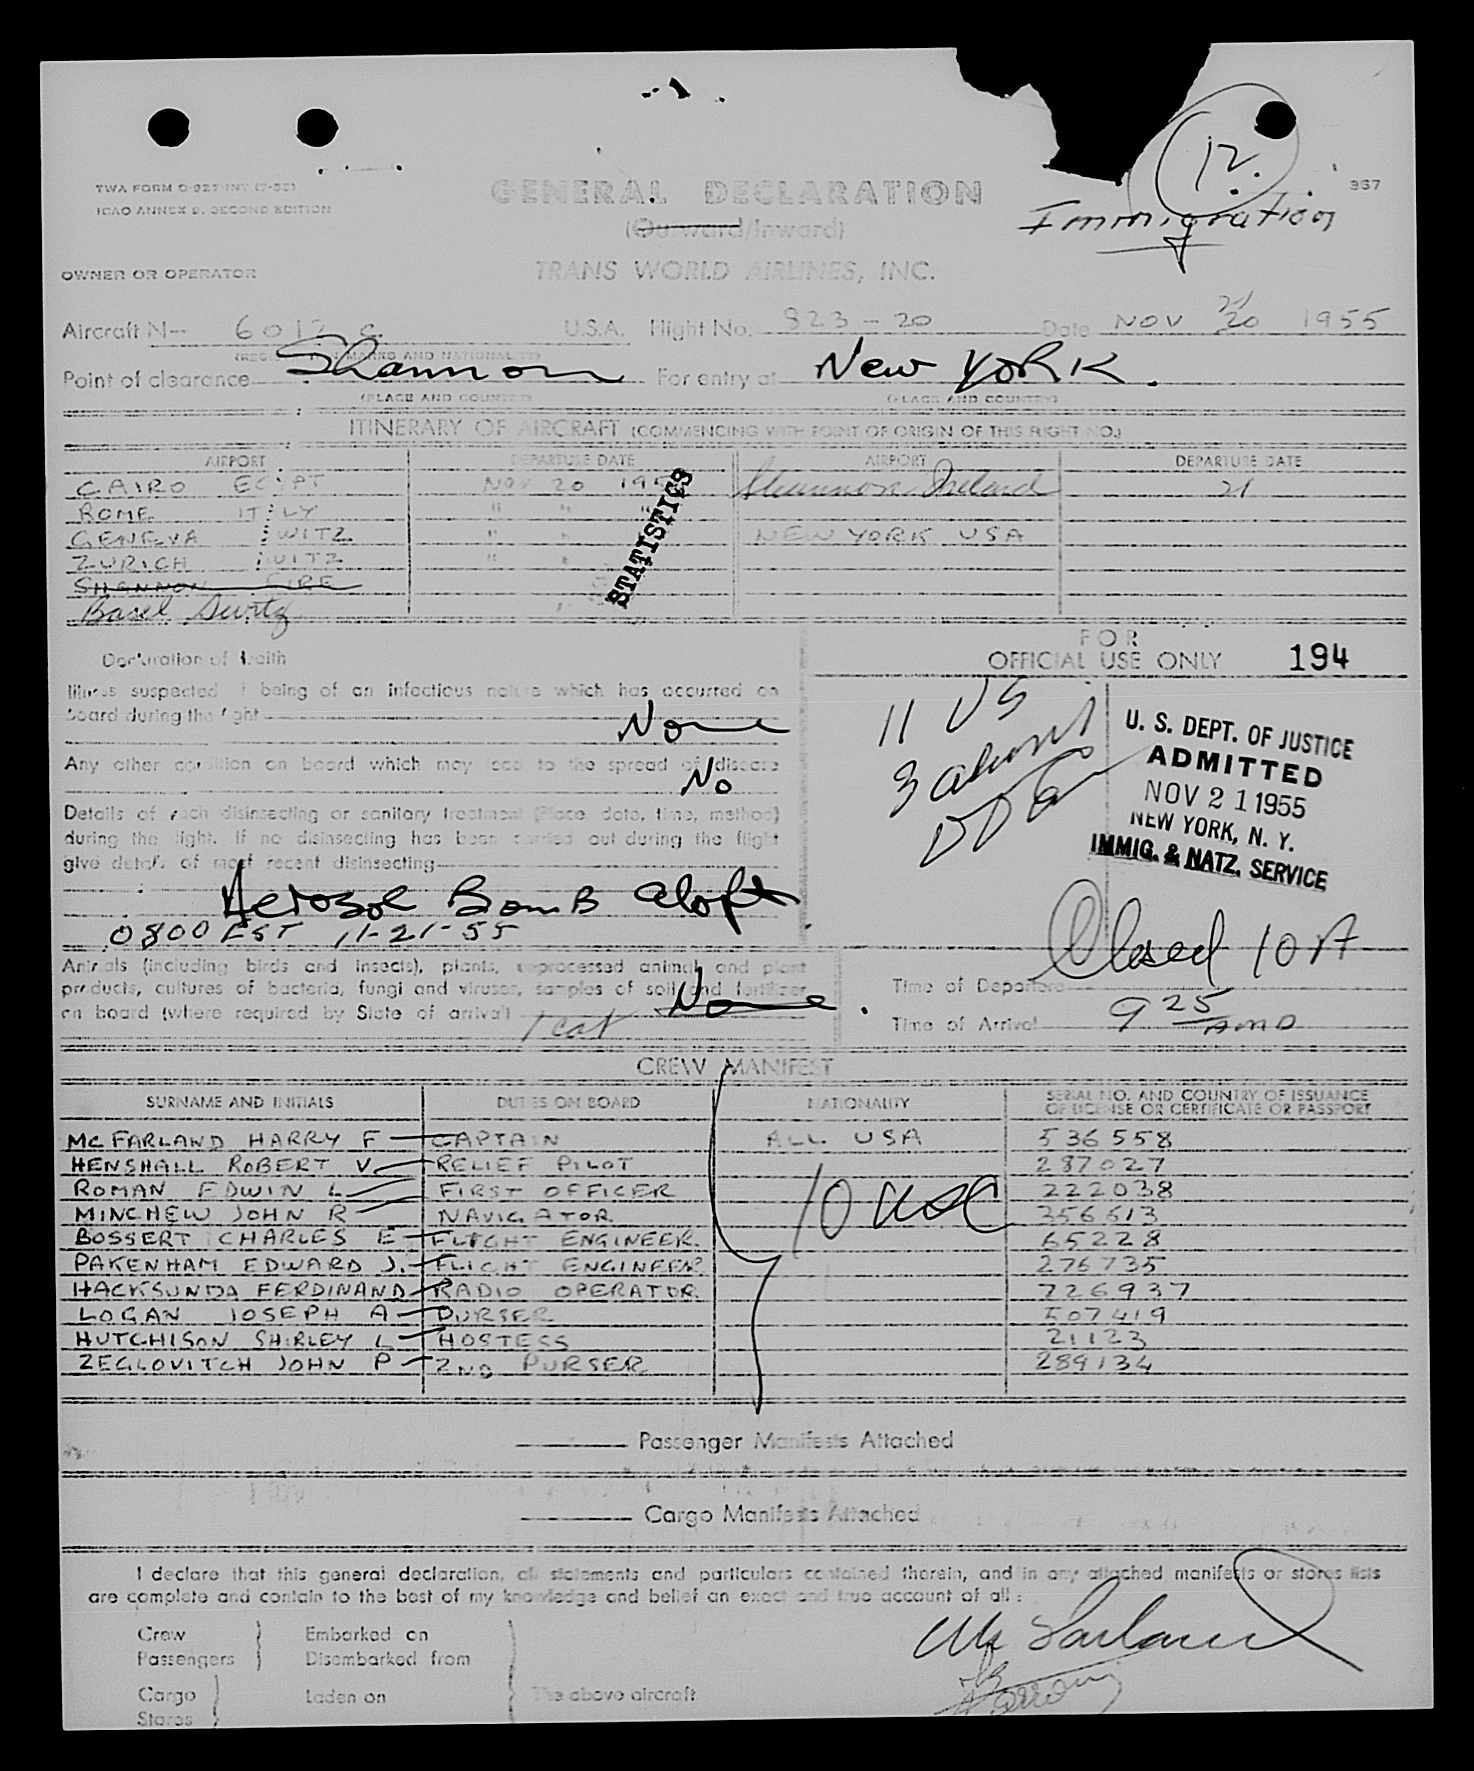 12.
TWA FORM O-927-INT (7-52)
ICAO ANNEX 9. SECOND EDITION
GENERAL DECLARATION
337
(Outward/Inward)
Immigration
OWNER OR OPERATOR
TRANS WORLD AIRLINES, INC.
Aircraft N- 6012 C U.S.A. Flight No. 823 - 20 Date NOV 20 21 1955
(REGISTRATION MARKS AND NATIONALITY)
Point of clearance Shannon For entry at New York.
(PLACE AND COUNTRY) (PLACE AND COUNTRY)
ITINERARY OF AIRCRAFT (COMMENCING WITH POINT OF ORIGIN OF THIS FLIGHT NO.)
AIRPORT DEPARTURE DATE AIRPORT DEPARTURE DATE
CAIRO EGYPT NOV 20 1955 Shannon Ireland 21
ROME ITALY " " "
GENEVA SWITZ " " NEW YORK USA
ZURICH SWITZ " "
SHANNON EIRE
Basel Switz "
STATISTICS
Declaration of Health
Illness suspected of being of an infectious nature which has occurred on
board during the flight None
Any other condition on board which may lead to the spread of disease
No
Details of each disinsecting or sanitary treatment (Place, date, time, method)
during the flight. If no disinsecting has been carried out during the flight
give details of most recent disinsecting
Aerosol Bomb aloft
0800 EST 11-21-55
FOR
OFFICIAL USE ONLY 194
11 US
3 aliens
U. S. DEPT. OF JUSTICE
ADMITTED
NOV 21 1955
NEW YORK, N. Y.
IMMIG. & NATZ. SERVICE
Closed 10 A
Animals (including birds and insects), plants, unprocessed animal and plant
products, cultures of bacteria, fungi and viruses, samples of soil and fertilizer
on board (where required by State of arrival) 1 cat None.
Time of Departure
Time of Arrival 9 25
CREW MANIFEST
SURNAME AND INITIALS DUTIES ON BOARD NATIONALITY SERIAL NO. AND COUNTRY OF ISSUANCE
OF LICENSE OR CERTIFICATE OR PASSPORT
MCFARLAND HARRY F CAPTAIN ALL USA 536558
HENSHALL ROBERT V RELIEF PILOT 287027
ROMAN EDWIN L FIRST OFFICER 222038
MINCHEW JOHN R NAVIGATOR 356613
10 USC
BOSSERT CHARLES E FLIGHT ENGINEER 65228
PAKENHAM EDWARD J. FLIGHT ENGINEER 276735
HACKSUNDA FERDINAND RADIO OPERATOR 226937
LOGAN JOSEPH A PURSER 507419
HUTCHISON SHIRLEY L HOSTESS 21123
ZEGLOVITCH JOHN P 2ND PURSER 289134
Passenger Manifests Attached
Cargo Manifests Attached
I declare that this general declaration, all statements and particulars contained therein, and in any attached manifests or stores lists
are complete and contain to the best of my knowledge and belief an exact and true account of all:
Crew Embarked on
Passengers Disembarked from
Cargo Laden on The above aircraft
Stores
McFarland